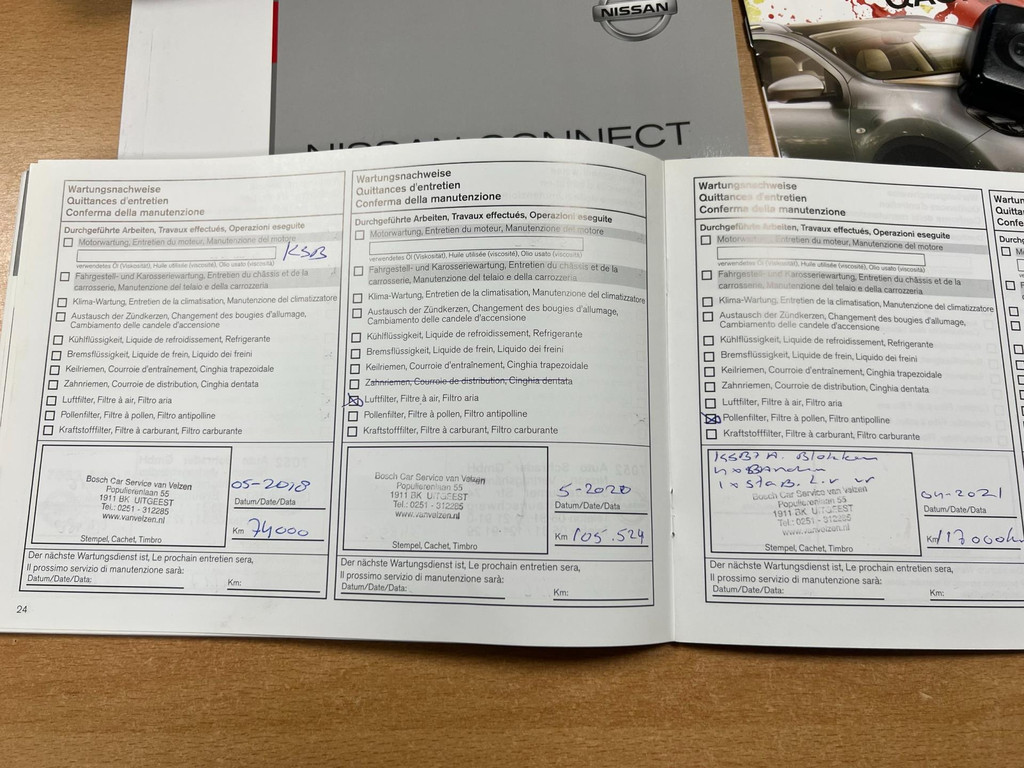 NISSAN
NISSAN CONNECT
Wartungsnachweise
Quittances d'entretien
Conferma della manutenzione
Durchgeführte Arbeiten, Travaux effectués, Operazioni eseguite
Motorwartung, Entretien du moteur, Manutenzione del motore
KSB
verwendetes Öl (Viskosität), Huile utilisée (viscosité), Olio usato (viscosità)
Fahrgestell- und Karosseriewartung, Entretien du châssis et de la
carrosserie, Manutenzione del telaio e della carrozzeria
Klima-Wartung, Entretien de la climatisation, Manutenzione del climatizzatore
Austausch der Zündkerzen, Changement des bougies d'allumage,
Cambiamento delle candele d'accensione
Kühlflüssigkeit, Liquide de refroidissement, Refrigerante
Bremsflüssigkeit, Liquide de frein, Liquido dei freini
Keilriemen, Courroie d'entraînement, Cinghia trapezoidale
Zahnriemen, Courroie de distribution, Cinghia dentata
Luftfilter, Filtre à air, Filtro aria
Pollenfilter, Filtre à pollen, Filtro antipolline
Kraftstofffilter, Filtre à carburant, Filtro carburante
Bosch Car Service van Velzen
Populierenlaan 55
1911 BK UITGEEST
Tel.: 0251 - 312285
www.vanvelzen.nl
05-2018
Datum/Date/Data:
Km 74000
Stempel, Cachet, Timbro
Der nächste Wartungsdienst ist, Le prochain entretien sera,
Il prossimo servizio di manutenzione sarà:
Datum/Date/Data: Km:
24
Wartungsnachweise
Quittances d'entretien
Conferma della manutenzione
Durchgeführte Arbeiten, Travaux effectués, Operazioni eseguite
Motorwartung, Entretien du moteur, Manutenzione del motore
verwendetes Öl (Viskosität), Huile utilisée (viscosité), Olio usato (viscosità)
Fahrgestell- und Karosseriewartung, Entretien du châssis et de la
carrosserie, Manutenzione del telaio e della carrozzeria
Klima-Wartung, Entretien de la climatisation, Manutenzione del climatizzatore
Austausch der Zündkerzen, Changement des bougies d'allumage,
Cambiamento delle candele d'accensione
Kühlflüssigkeit, Liquide de refroidissement, Refrigerante
Bremsflüssigkeit, Liquide de frein, Liquido dei freini
Keilriemen, Courroie d'entraînement, Cinghia trapezoidale
Zahnriemen, Courroie de distribution, Cinghia dentata
Luftfilter, Filtre à air, Filtro aria
Pollenfilter, Filtre à pollen, Filtro antipolline
Kraftstofffilter, Filtre à carburant, Filtro carburante
Bosch Car Service van Velzen
Populierenlaan 55
1911 BK UITGEEST
Tel.: 0251 - 312285
www.vanvelzen.nl
5-2020
Datum/Date/Data:
Km 105.524
Stempel, Cachet, Timbro
Der nächste Wartungsdienst ist, Le prochain entretien sera,
Il prossimo servizio di manutenzione sarà:
Datum/Date/Data: Km:
Wartungsnachweise
Quittances d'entretien
Conferma della manutenzione
Durchgeführte Arbeiten, Travaux effectués, Operazioni eseguite
Motorwartung, Entretien du moteur, Manutenzione del motore
verwendetes Öl (Viskosität), Huile utilisée (viscosité), Olio usato (viscosità)
Fahrgestell- und Karosseriewartung, Entretien du châssis et de la
carrosserie, Manutenzione del telaio e della carrozzeria
Klima-Wartung, Entretien de la climatisation, Manutenzione del climatizzatore
Austausch der Zündkerzen, Changement des bougies d'allumage,
Cambiamento delle candele d'accensione
Kühlflüssigkeit, Liquide de refroidissement, Refrigerante
Bremsflüssigkeit, Liquide de frein, Liquido dei freini
Keilriemen, Courroie d'entraînement, Cinghia trapezoidale
Zahnriemen, Courroie de distribution, Cinghia dentata
Luftfilter, Filtre à air, Filtro aria
Pollenfilter, Filtre à pollen, Filtro antipolline
Kraftstofffilter, Filtre à carburant, Filtro carburante
KSB? A. Blokken
4x Banden
1x staB. L.v
Bosch Car Service van Velzen
Populierenlaan 55
1911 BK UITGEEST
Tel.: 0251 - 312285
www.vanvelzen.nl
04-2021
Datum/Date/Data:
Km 117000
Stempel, Cachet, Timbro
Der nächste Wartungsdienst ist, Le prochain entretien sera,
Il prossimo servizio di manutenzione sarà:
Datum/Date/Data: Km: